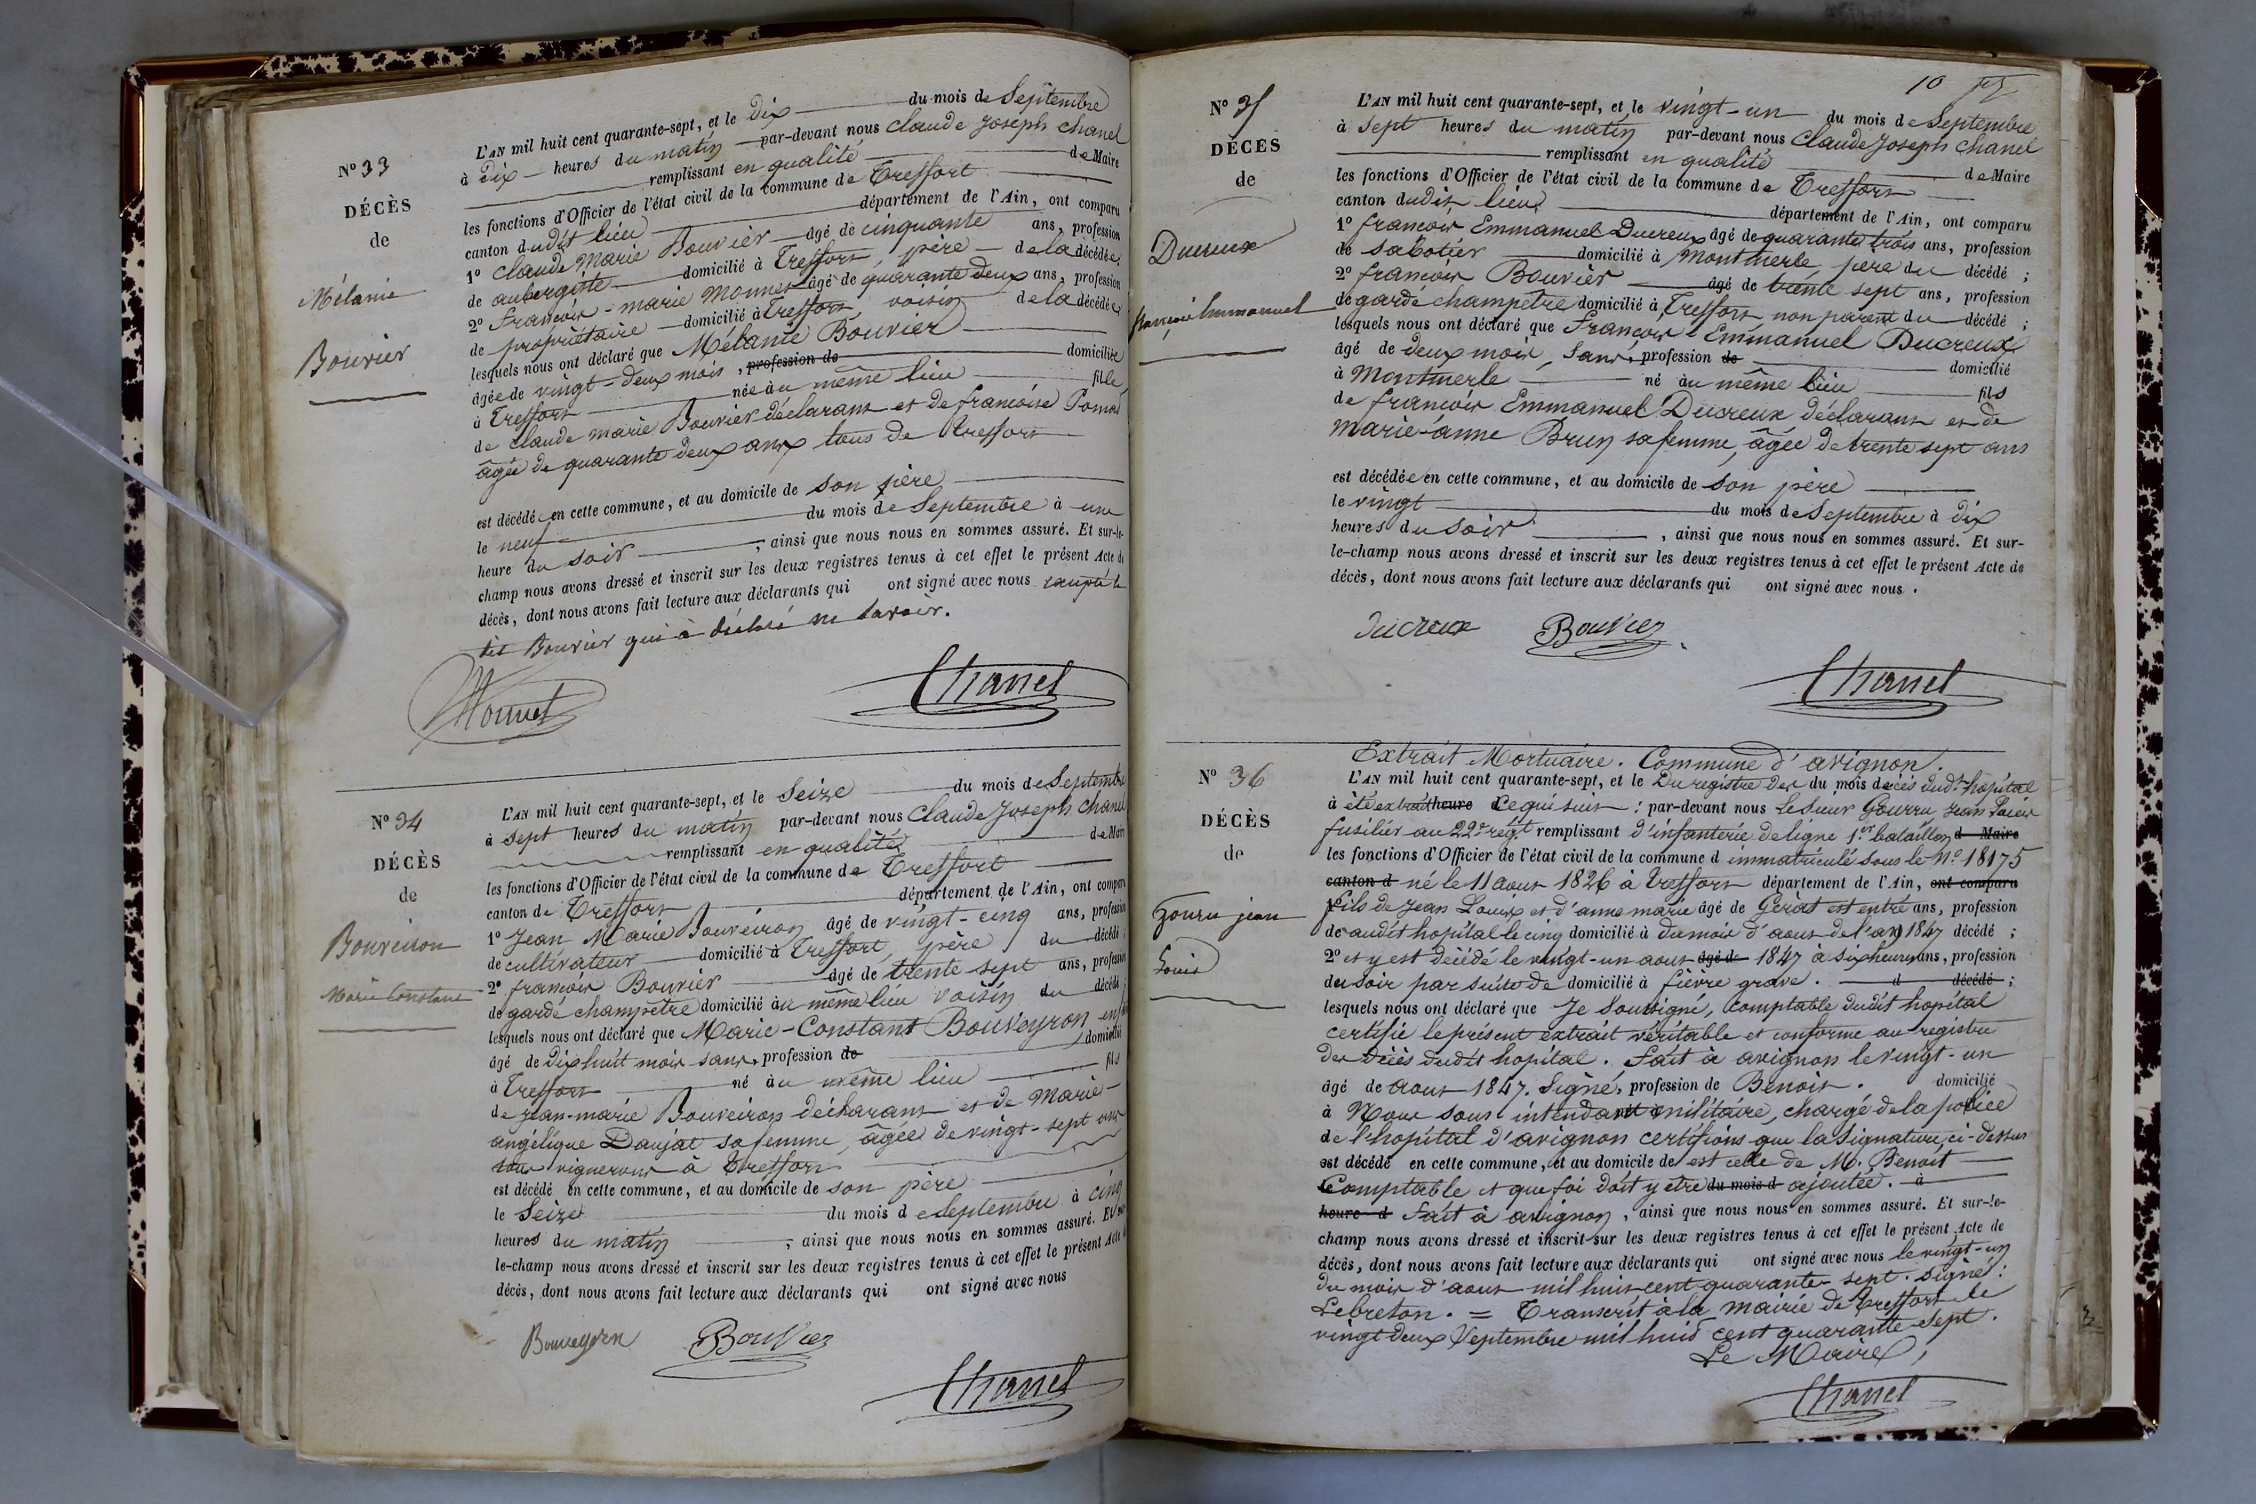 N° 33
DÉCÈS
de
Mélanie
Bouvier
L'AN mil huit cent quarante-sept, et le dix du mois de Septembre
à dix heures du matin par-devant nous Claude Joseph Chanel
remplissant en qualité de Maire
les fonctions d'Officier de l'état civil de la commune de Treffort
canton dudit lieu département de l'Ain, ont comparu
1° Claude Marie Bouvier âgé de cinquante ans, profession
de aubergiste domicilié à Treffort, père de la décédée;
2° François-Marie Monnet âgé de quarante deux ans, profession
de propriétaire domicilié à Treffort voisin de la décédée;
lesquels nous ont déclaré que Mélanie Bouvier
âgée de vingt-deux mois, profession de domiciliée
à Treffort née au même lieu fille
de Claude Marie Bouvier déclarant et de françoise
âgée de quarante deux ans tous de Treffort
est décédé en cette commune, et au domicile de son père
le neuf du mois de Septembre à une
heure du soir, ainsi que nous nous en sommes assuré. Et sur-le-
champ nous avons dressé et inscrit sur les deux registres tenus à cet effet le présent Acte de
décès, dont nous avons fait lecture aux déclarants qui ont signé avec nous excepté le
dit Bouvier qui à déclaré ne savoir.
Monnet Chanel
N° 34
DÉCÈS
de
Bouveiron
Marie Constant
L'AN mil huit cent quarante-sept, et le Seize du mois de Septembre
à sept heures du matin par-devant nous Claude Joseph Chanel
remplissant en qualité de Maire
les fonctions d'Officier de l'état civil de la commune de Treffort
canton de Treffort département de l'Ain, ont comparu
1° Jean Marie Bouveiron âgé de vingt-cinq ans, profession
de cultivateur domicilié à Treffort, père du décédé;
2° françois Bouvier âgé de trente sept ans, profession
de garde champetre domicilié au même lieu voisin du décédé;
lesquels nous ont déclaré que Marie-Constant Bouveyron
âgé de dix huit mois sans, profession de domicilié
à Treffort né au même lieu fils
de jean-marie Bouveiron déclarant et de Marie-
angélique Daujat sa femme, âgée de vingt-sept ans
tous vignerons à Treffort
est décédé en cette commune, et au domicile de son père
le Seize du mois de Septembre à cinq
heures du matin, ainsi que nous nous en sommes assuré. Et sur-
le-champ nous avons dressé et inscrit sur les deux registres tenus à cet effet le présent Acte de
décès, dont nous avons fait lecture aux déclarants qui ont signé avec nous
Bouveyron Bouvier
Chanel
10
N° 35
DÉCÈS
de
Ducreux
françois Emmanuel
L'AN mil huit cent quarante-sept, et le vingt-un du mois de Septembre
à sept heures du matin par-devant nous Claude Joseph Chanel
remplissant en qualité de Maire
les fonctions d'Officier de l'état civil de la commune de Treffort
canton dudit lieu département de l'Ain, ont comparu
1° françois Emmanuel Ducreux âgé de quarante trois ans, profession
de sabotier domicilié à Montmerle père du décédé;
2° françois Bouvier âgé de trente sept ans, profession
de garde champetre domicilié à Treffort non parent du décédé;
lesquels nous ont déclaré que François Emmanuel Ducreux
âgé de deux mois, sans, profession de domicilié
à Montmerle né au même lieu fils
de françois Emmanuel Ducreux déclarant et de
marie-anne Brun sa femme, âgée de trente sept ans
est décédée en cette commune, et au domicile de son père
le vingt du mois de Septembre à dix
heures du soir, ainsi que nous nous en sommes assuré. Et sur-
le-champ nous avons dressé et inscrit sur les deux registres tenus à cet effet le présent Acte de
décès, dont nous avons fait lecture aux déclarants qui ont signé avec nous.
ducreux Bouvier
Chanel
N° 36
DÉCÈS
de
Gourru jean
Louis
Extrait Mortuaire. Commune d'avignon.
L'AN mil huit cent quarante-sept, et le Du registre des du mois de décès dudt hopital
à été extrait heure ce qui suit: par-devant nous Le Sieur Gourru Jean Louis
fusilier au 22e régt remplissant d'infanterie de ligne 1er bataillon d Maire
les fonctions d'Officier de l'état civil de la commune d immatriculé sous le N° 18175
canton d né le 11 aout 1826 à Treffort département de l'Ain, ont comparu
1° fils de Jean Louis et d'anne marie âgé de Géras est entré ans, profession
de audit hopital le cinq domicilié à du mois d'aout de l'an 1847 décédé;
2° et y est décédé le vingt-un aout âgé de 1847 à six heures ans, profession
de du soir par suite de domicilié à fièvre grave. d décédé;
lesquels nous ont déclaré que Je Soussigné, comptable dudit hopital
certifie le présent extrait véritable et conforme au registre
des décès dudit hopital. fait à avignon le vingt-un
âgé de aout 1847. Signé, profession de Benoit. domicilié
à Nous sous intendant militaire, chargé de la police
de l'hopital d'avignon certifions que la signature ci-dessus
est décédé en cette commune, et au domicile de est celle de M. Benoit
le Comptable et que foi doit y etre du mois d ajoutée. à
heure d fait à avignon, ainsi que nous nous en sommes assuré. Et sur-le-
champ nous avons dressé et inscrit sur les deux registres tenus à cet effet le présent Acte de
décès, dont nous avons fait lecture aux déclarants qui ont signé avec nous le vingt-un
du mois d'aout mil huit cent quarante sept. Signé:
Lebreton. = Transcrit à la mairie de Treffort le
vingt deux Septembre mil huit cent quarante sept.
Le Maire,
Chanel